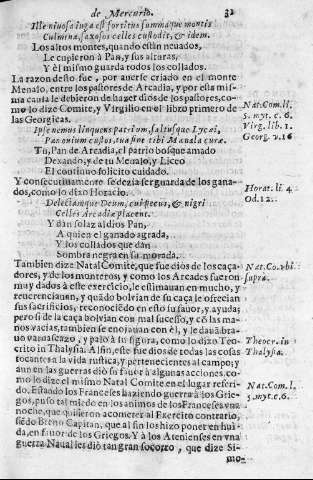 de Mercurio. 32
Illa niuosa iuga est sortitus summaque montis
Culmina, saxosos celles custodit, & idem.
Los altos montes, quando estàn neuados,
Le cupieron à Pan, y sus alturas,
Y èl mismo guarda todos los collados.
La razon desto fue, por auerse criado en el monte
Menalo, entre los pastores de Arcadia, y por esta mis-
ma causa le debieron de hazer dios de los pastores, co-
mo lo dize Comite, y Virgilio en el libro primero de
las Georgicas.
Nat. Com. li.
5. myt. c. 6.
Virg. lib. 1.
Georg. v. 16
Ipse nemus linquens patrium, saltusque Lycæi,
Pan ouium custos, tua si re tibi Mænala curæ.
Tu, Pan de Arcadia, el patrio bosque amado
Dexando, y de tu Menalo, y Liceo
El continuo solicito cuidado.
Y consecutiuamente se dezia ser guarda de los gana-
dos, como lo dixo Horacio.
Horat. li. 4
Od. 12.
Delectantque Deum, cui pecus, & nigri
Celles Arcadiæ placent.
Y dàn solaz al dios Pan,
A quien el ganado agrada,
Y los collados que dàn
Sombra negra en su morada.
Tambien dize Natal Comite, que fue dios de los caça-
dores, y de los monteros, y como los Arcades fueron
Nat. Co. vbi
supra.
muy dados à este exercicio, le estimauan en mucho, y
reuerenciauan, y quādo bolvian de su caça le ofrecian
sus sacrificios, reconociēdo en esto su fauor, y ayuda;
pero si de la caça bolvian con mal sucesso, y cō las ma-
nos vacias, tambien se enojauan con èl, y le dauā bra-
uo vamosazo, y palo à su figura, como lo dixo Teo-
crito in Thalysia. Al fin, este fue dios de todas las cosas
Theocr. in
Thalysia.
tocantes à la vida rustica, y pertenecientes al campo; y
aun en las guerras diò su fauor à algunas acciones. co-
mo lo dize el mismo Natal Comite en el lugar referi-
do. Estando los Franceses haziendo guerra à los Grie-
Nat. Com. l.
5. myt. c. 6.
gos, puso tal miedo en los animos de los Franceses vna
noche, que quisieron acometer al Exercito contrario,
siēdo Breno Capitan, que al fin los hizo poner en hui-
da, en fauor de los Griegos. Y à los Atenienses en vna
guerra Naual les diò tan gran socorro, que dize Si-
mo-